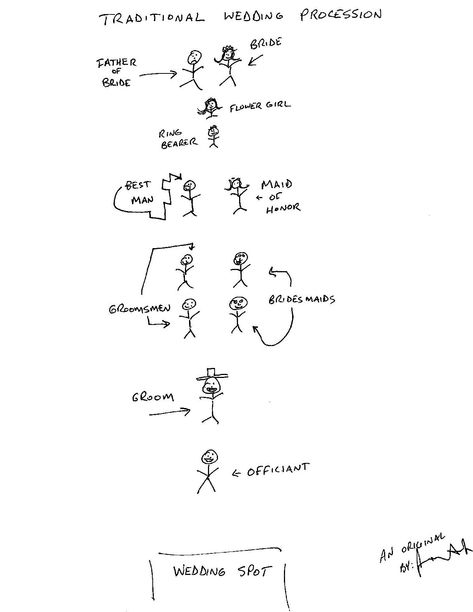 TRADITIONAL WEDDING PROCESSION
FATHER
OF
BRIDE
BRIDE
FLOWER GIRL
RING
BEARER
BEST
MAN
MAID
OF
HONOR
GROOMSMEN
BRIDESMAIDS
GROOM
OFFICIANT
WEDDING SPOT
AN ORIGINAL
BY: